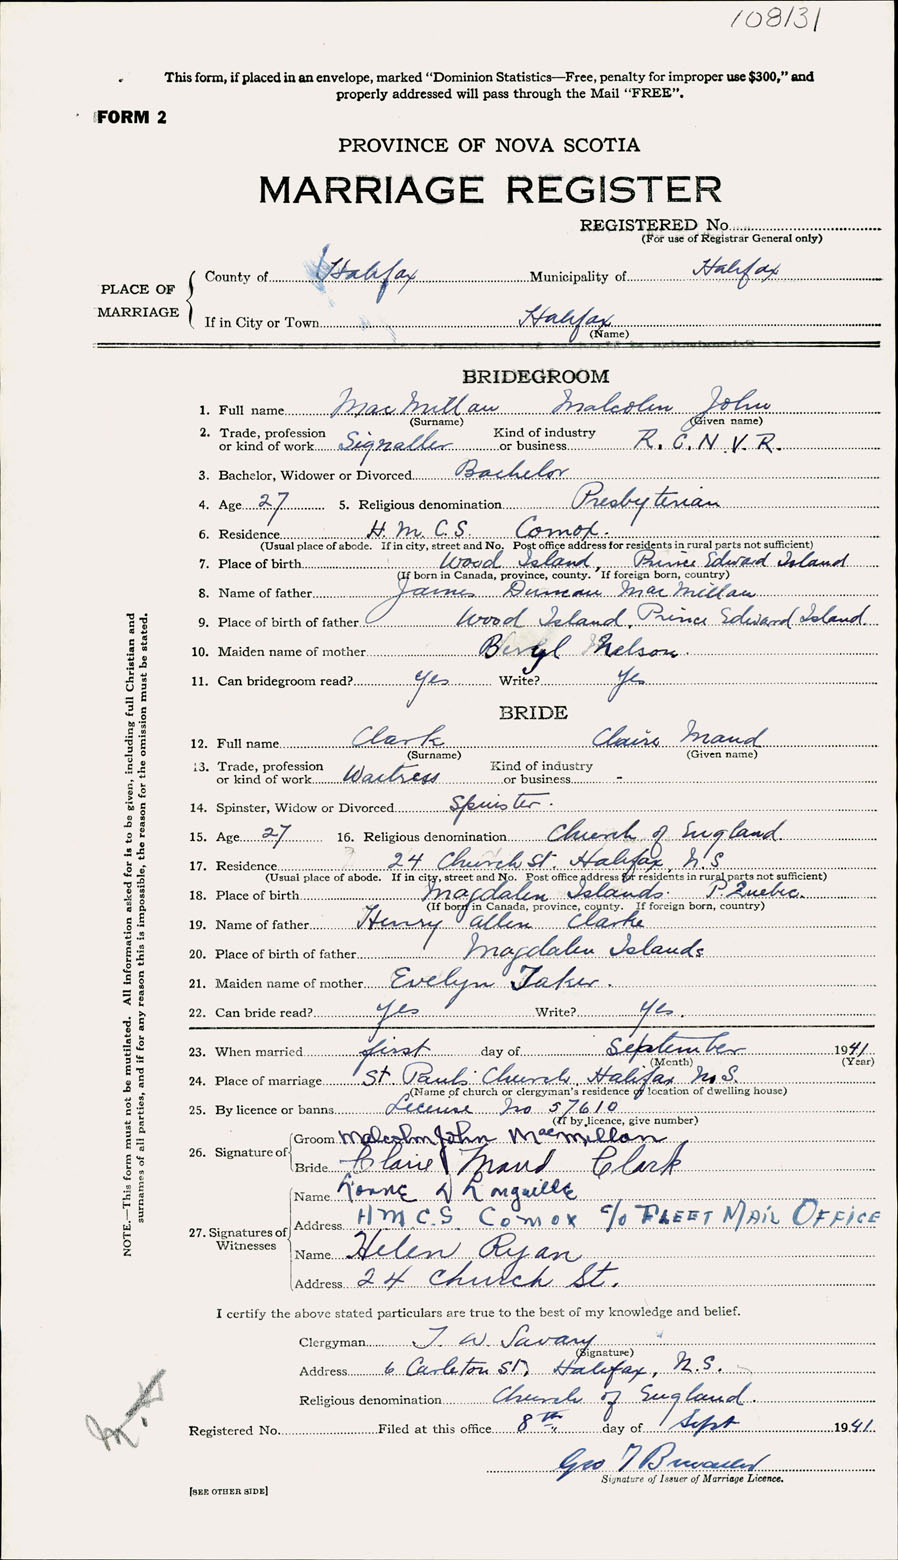 108131
This form, if placed in an envelope, marked “Dominion Statistics—Free, penalty for improper use $300,” and
properly addressed will pass through the Mail “FREE”.
FORM 2
PROVINCE OF NOVA SCOTIA
MARRIAGE REGISTER
REGISTERED No.
(For use of Registrar General only)
PLACE OF MARRIAGE
County of Halifax Municipality of Halifax
If in City or Town Halifax
(Name)
BRIDEGROOM
1. Full name MacMillan Malcolm John
(Surname) (Given name)
2. Trade, profession or kind of work Signaller Kind of industry or business R.C.N.V.R.
3. Bachelor, Widower or Divorced Bachelor
4. Age 27 5. Religious denomination Presbyterian
6. Residence H.M.C.S. Comox.
(Usual place of abode. If in city, street and No. Post office address for residents in rural parts not sufficient)
7. Place of birth Wood Island, Prince Edward Island
(If born in Canada, province, county. If foreign born, country)
8. Name of father James Duncan MacMillan
9. Place of birth of father Wood Island, Prince Edward Island.
10. Maiden name of mother Beryl Nelson.
11. Can bridegroom read? yes Write? Yes
BRIDE
12. Full name Clark Claire Maud
(Surname) (Given name)
13. Trade, profession or kind of work Waitress Kind of industry or business -
14. Spinster, Widow or Divorced Spinster.
15. Age 27 16. Religious denomination Church of England.
17. Residence 24 Church St. Halifax, N.S.
(Usual place of abode. If in city, street and No. Post office address for residents in rural parts not sufficient)
18. Place of birth Magdalen Islands. P. Quebec.
(If born in Canada, province, county. If foreign born, country)
19. Name of father Henry Allen Clarke
20. Place of birth of father Magdalen Islands
21. Maiden name of mother Evelyn Taker.
22. Can bride read? Yes Write? Yes.
23. When married first day of September 1941
(Month) (Year)
24. Place of marriage St Pauls Church, Halifax N.S.
(Name of church or clergyman's residence or location of dwelling house)
25. By licence or banns License No 57610
(If by licence, give number)
26. Signature of
Groom Malcolm John MacMillan
Bride Claire Maud Clark
27. Signatures of Witnesses
Name D Longuille
Address HMCS Comox c/o FLEET MAIL OFFICE
Name Helen Ryan
Address 24 Church St.
I certify the above stated particulars are true to the best of my knowledge and belief.
Clergyman T. W. Savary
(Signature)
Address 6 Carleton St, Halifax, N.S.
Religious denomination Church of England.
Registered No. Filed at this office 8th day of Sept 1941
Geo T
Signature of Issuer of Marriage Licence.
[SEE OTHER SIDE]
NOTE.—This form must not be mutilated. All information asked for is to be given, including full Christian and
surnames of all parties, and if for any reason this is impossible, the reason for the omission must be stated.